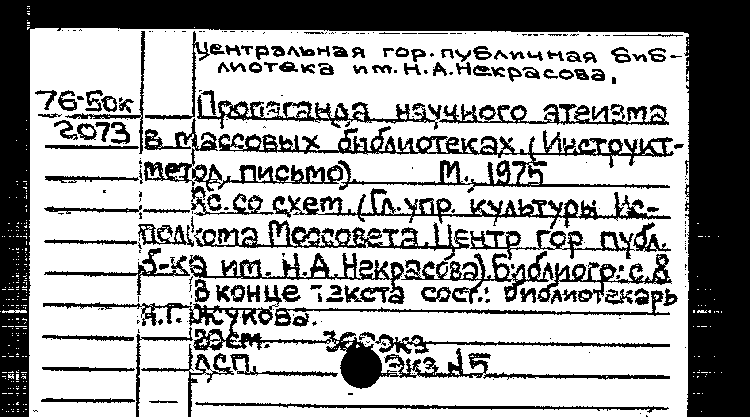 Центральная гор. публичная биб-
лиотека им. Н.А.Некрасова.
76-50к Пропаганда научного атеизма
2073 в массовых библиотеках. (Инструкт.-
метод. письмо). М., 1975
8с. со схем. (Гл. упр. культуры Ис-
полкома Моссовета. Центр гор публ.
б-ка им. Н.А.Некрасова). Библиогр: с. 8
В конце текста сост.: библиотекарь
Н.Г. Жукова.
20см. 300экз
ДСП. Экз №5